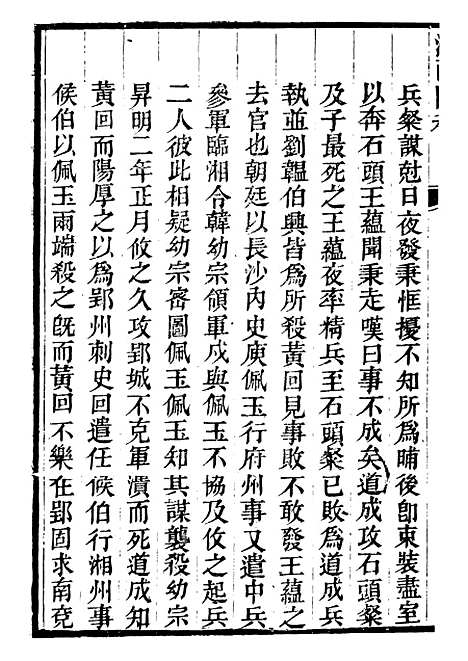 兵粲謀尅日夜發秉恇擾不知所爲晡後卽束裝盡室
以奔石頭王蘊聞秉走嘆曰事不成矣道成攻石頭粲
及子最死之王蘊夜率精兵至石頭粲已敗爲道成兵
執並劉韞伯興皆爲所殺黃回見事敗不敢發王蘊之
去官也朝廷以長沙內史庾佩玉行府州事又遣中兵
參軍臨湘令韓幼宗領軍戍與佩玉不協及攸之起兵
二人彼此相疑幼宗密圖佩玉佩玉知其謀襲殺幼宗
昇明二年正月攸之久攻郢城不克軍潰而死道成知
黃回而陽厚之以爲郢州刺史回遣任候伯行湘州事
候伯以佩玉兩端殺之既而黃回不樂在郢固求南兗